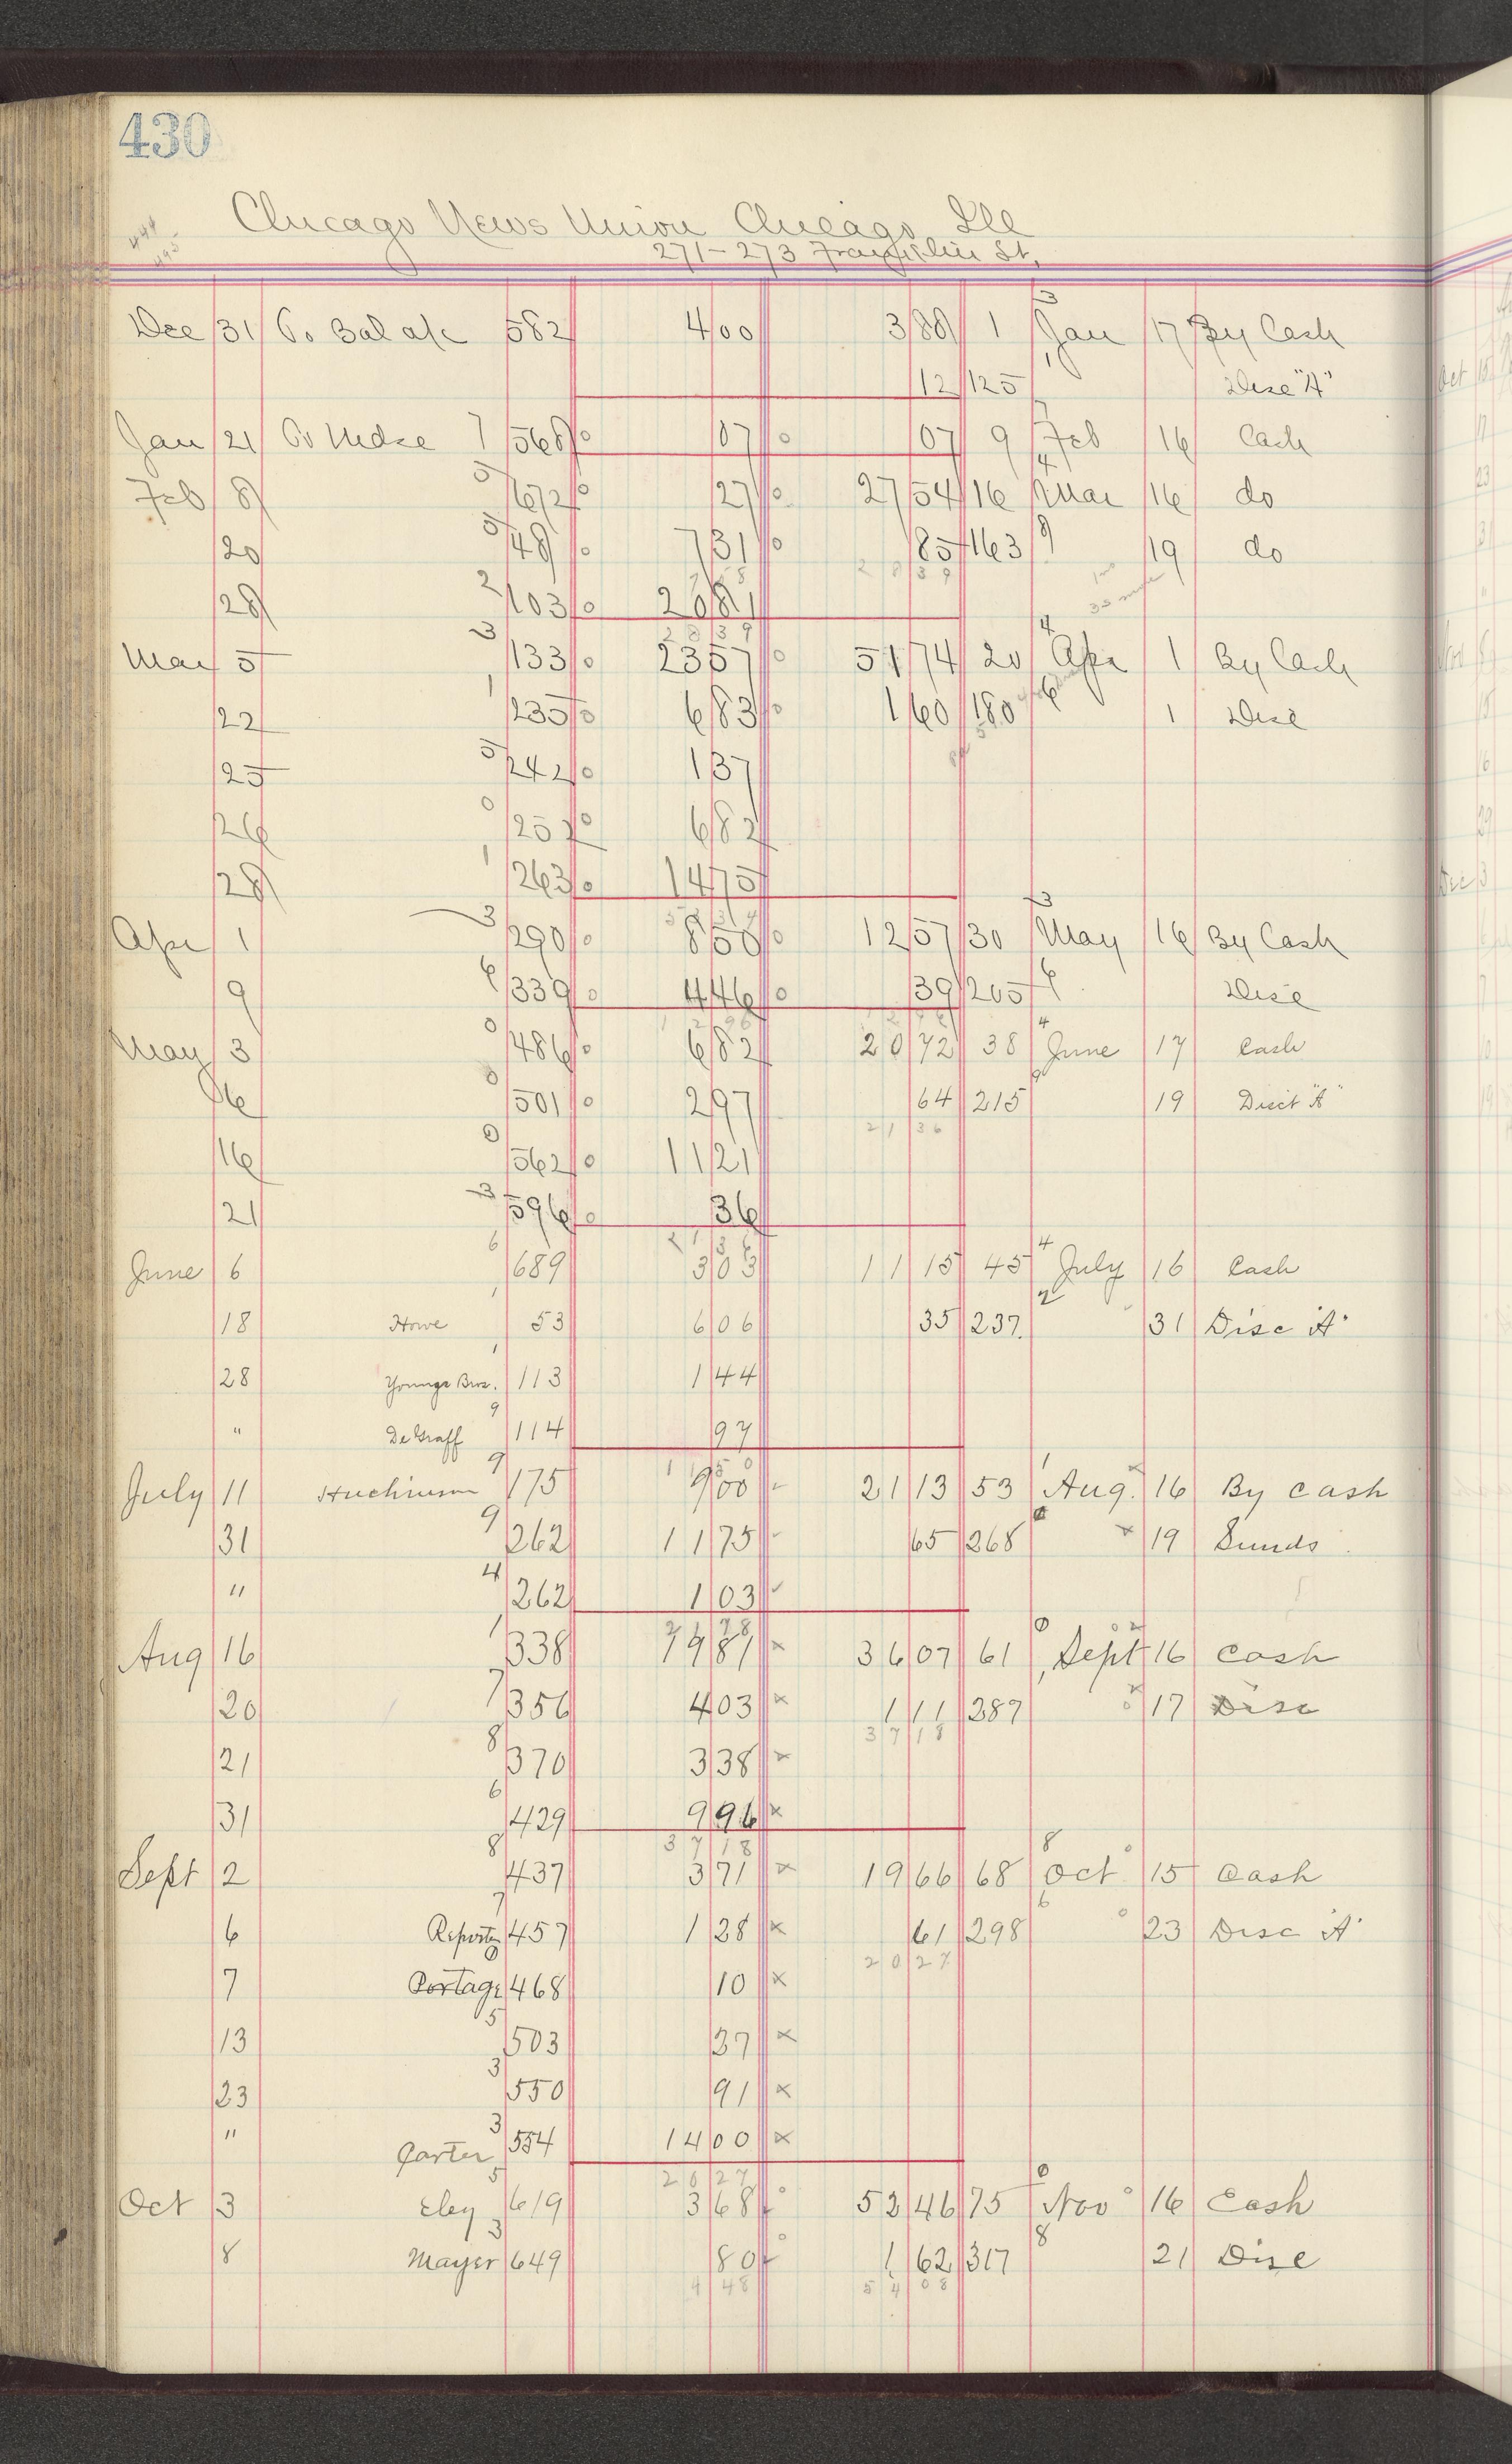 430
Chicago News Union Chicago Ill
271-273 Franklin St.
Dec 31 To Bal a/c 582 4 00 3 88 1 Jan 17 By Cash
12 125 Disc "A"
Jan 21 To Mdse 7 568 07 07 9 Feb 16 Cash
Feb 8 5 672 27 27 54 16 Mar 16 do
20 5 48 7 31 85 163 19 do
28 2 103 20 81
28 39
Mar 5 3 133 23 57 51 74 20 Apr 1 By Cash
22 1 235 6 83 1 60 180 1 Disc
25 5 242 1 37
26 0 257 6 82
28 1 263 14 75
Apr 1 3 290 8 50 12 57 30 May 16 By Cash
9 6 339 4 46 39 205 Disc
May 3 0 486 6 82 20 72 38 June 17 Cash
6 0 501 2 97 64 215 19 Disct "A"
21 36
16 0 562 11 21
21 3 596 36
21 36
June 6 6 689 3 03 11 15 45 July 16 Cash
18 Howe 53 6 06 35 237 31 Disc "A"
28 Youngs Bros. 113 1 44
" DeGraff 114 97
11 50
July 11 Huchinson 175 9 00 21 13 53 Aug. 16 By Cash
31 9 262 11 75 65 268 19 Sunds
" 4 262 1 03
21 78
Aug 16 338 19 81 36 07 61 Sept 16 Cash
20 7 356 4 03 1 11 287 17 Disc
37 18
21 8 370 3 38
31 6 429 9 96
37 18
Sept 2 8 437 3 71 19 66 68 Oct 15 Cash
6 7 Reporter 457 1 28 61 298 23 Disc "A"
20 27
7 Portage 468 10
13 5 503 37
23 3 550 91
" Carter 3 554 14 00
20 27
Oct 3 Eley 5 619 3 68 52 46 75 Nov 16 Cash
8 Mayer 3 649 80 1 62 317 21 Disc
4 48 54 08